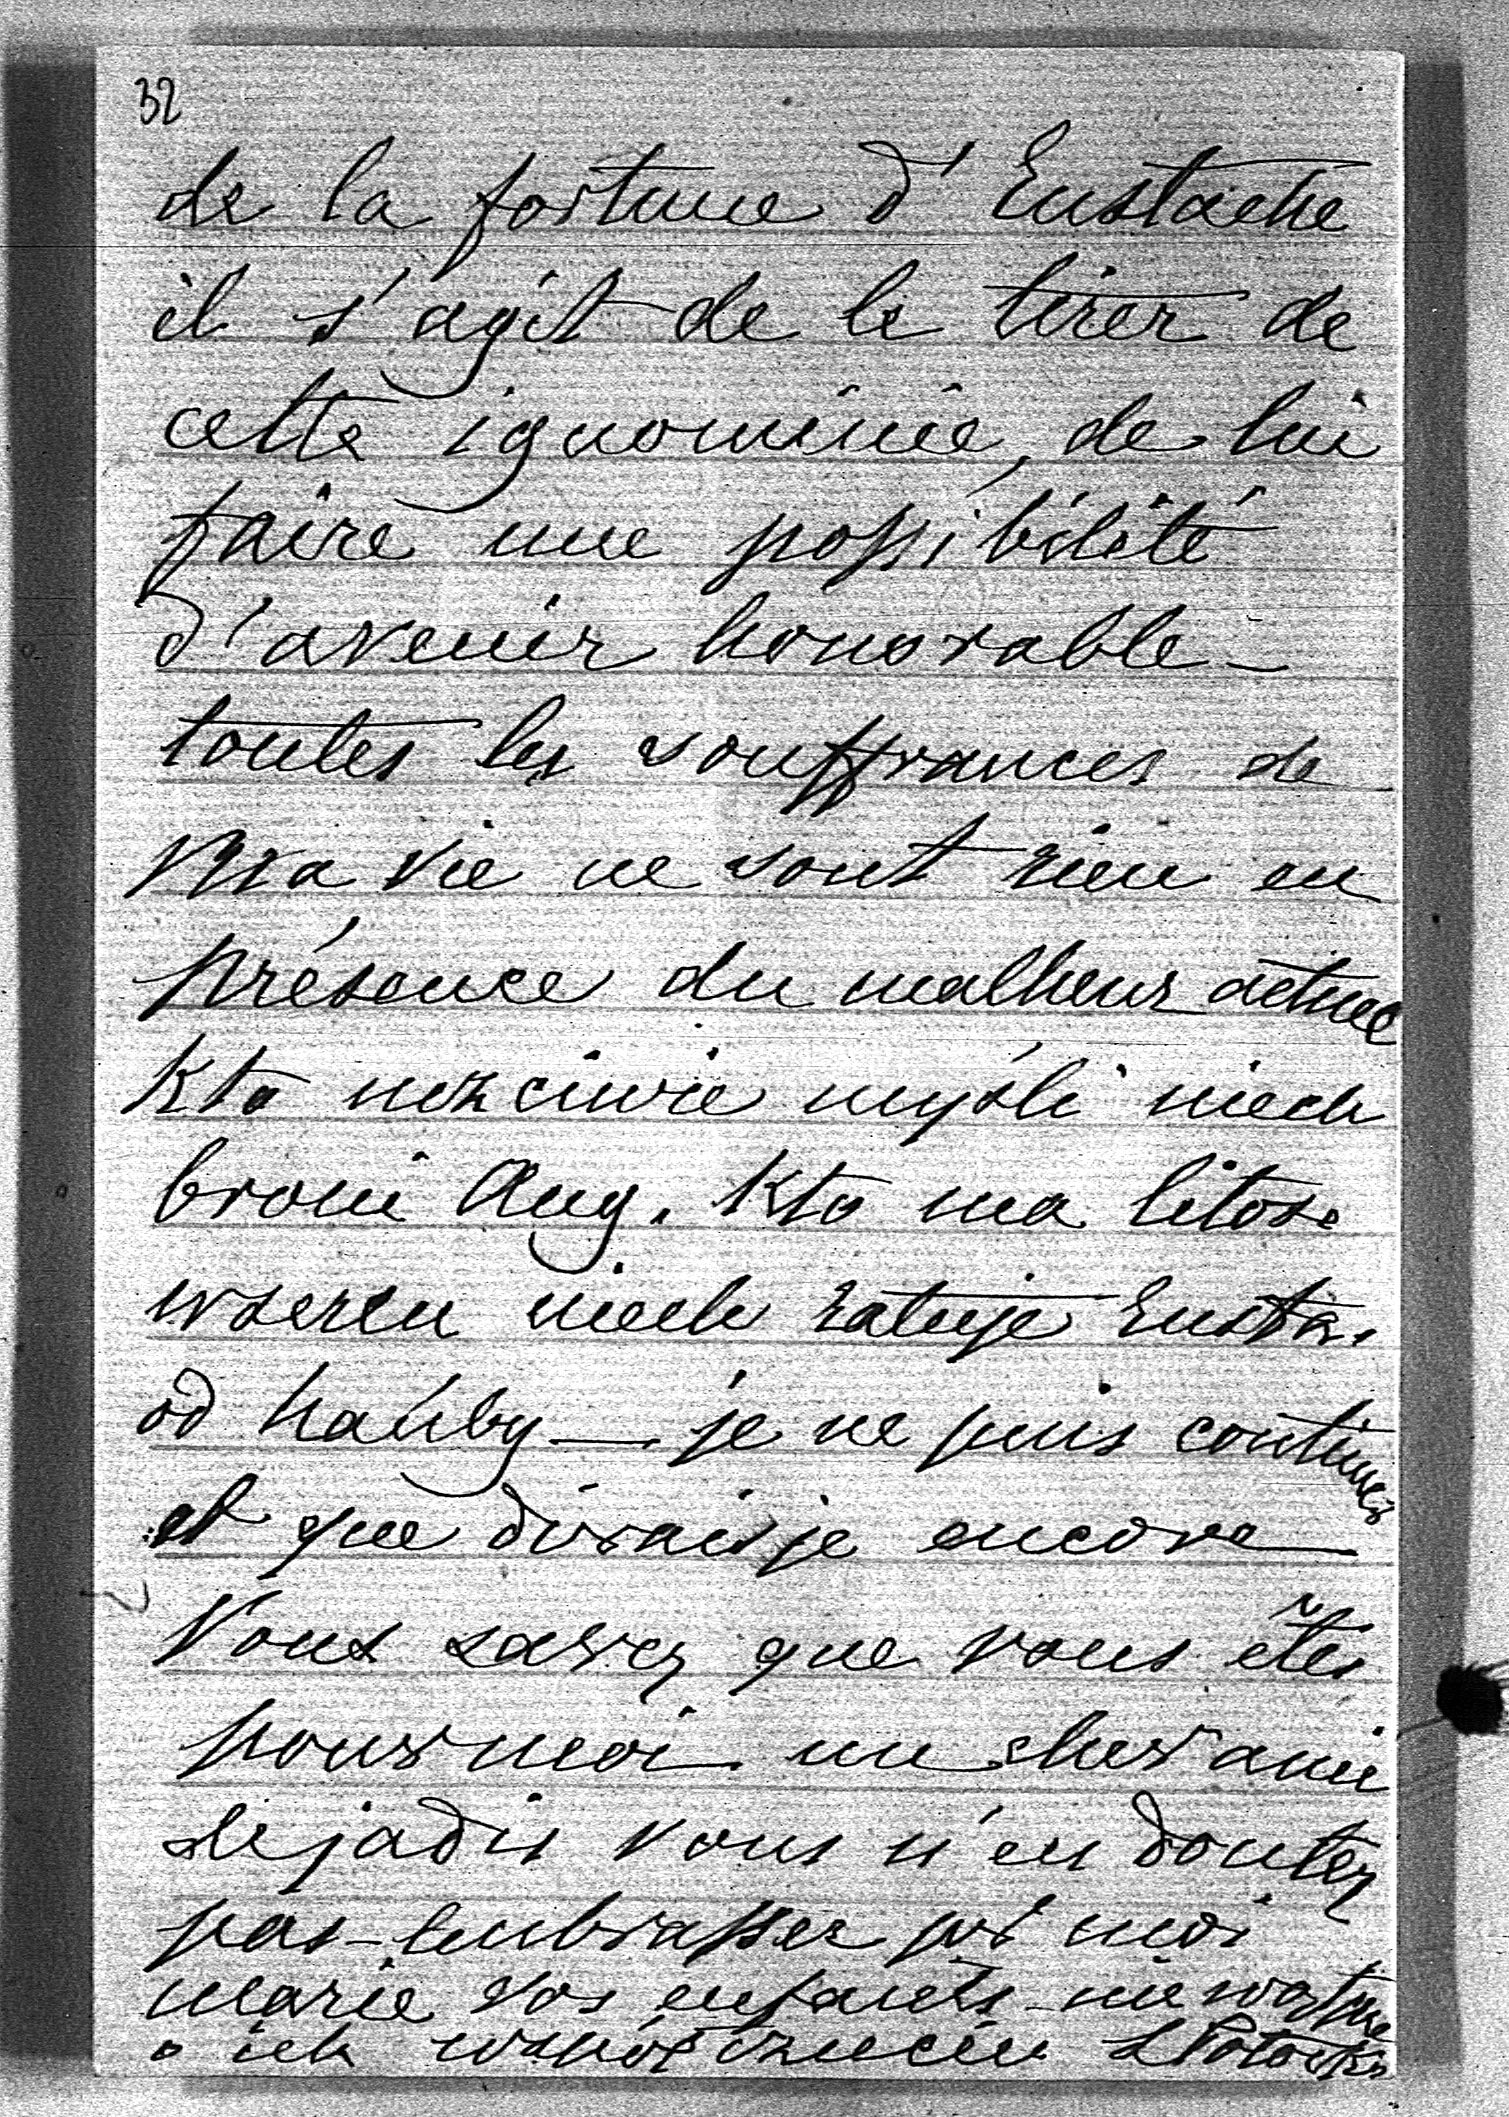 32
de la fortune d'Eustache
il s'agit de le tirer de
cette ignominie, de lui
faire une possibilité
d'avenir honorable –
toutes les souffrances de
ma vie ne sont rien en
présence du malheur actuel
Kto uczciwie myśli niech
broni Aug. Kto ma litość
w sercu niech ratuje Eusta.
od hańby — je ne puis continuer
et que dirais je encore
Vous savez que vous êtes
pour moi un cher ami
de jadis vous n'en doutez
pas – embrasser pr moi
Marie vos enfants – nie wątpię
o ich współczuciu